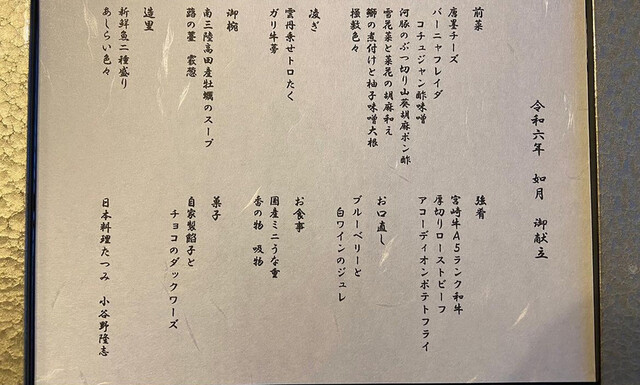 令和六年 如月 御献立
前菜
唐墨チーズ
バーニャフレイダ
コチュジャン酢味噌
河豚のぶつ切り山葵胡麻ポン酢
雪花菜と菜花の胡麻和え
鰤の煮付けと柚子味噌大根
掻敷色々
凌ぎ
雲丹乗せトロたく
ガリ牛蒡
御椀
南三陸高田産牡蠣のスープ
蕗の薹 霰葱
造里
新鮮魚二種盛り
あしらい色々
強肴
宮崎牛A5ランク和牛
厚切りローストビーフ
アコーディオンポテトフライ
お口直し
ブルーベリーと
白ワインのジュレ
お食事
国産ミニうな重
香の物 吸物
菓子
自家製餡子と
チョコのダックワーズ
日本料理たつみ 小谷野隆志